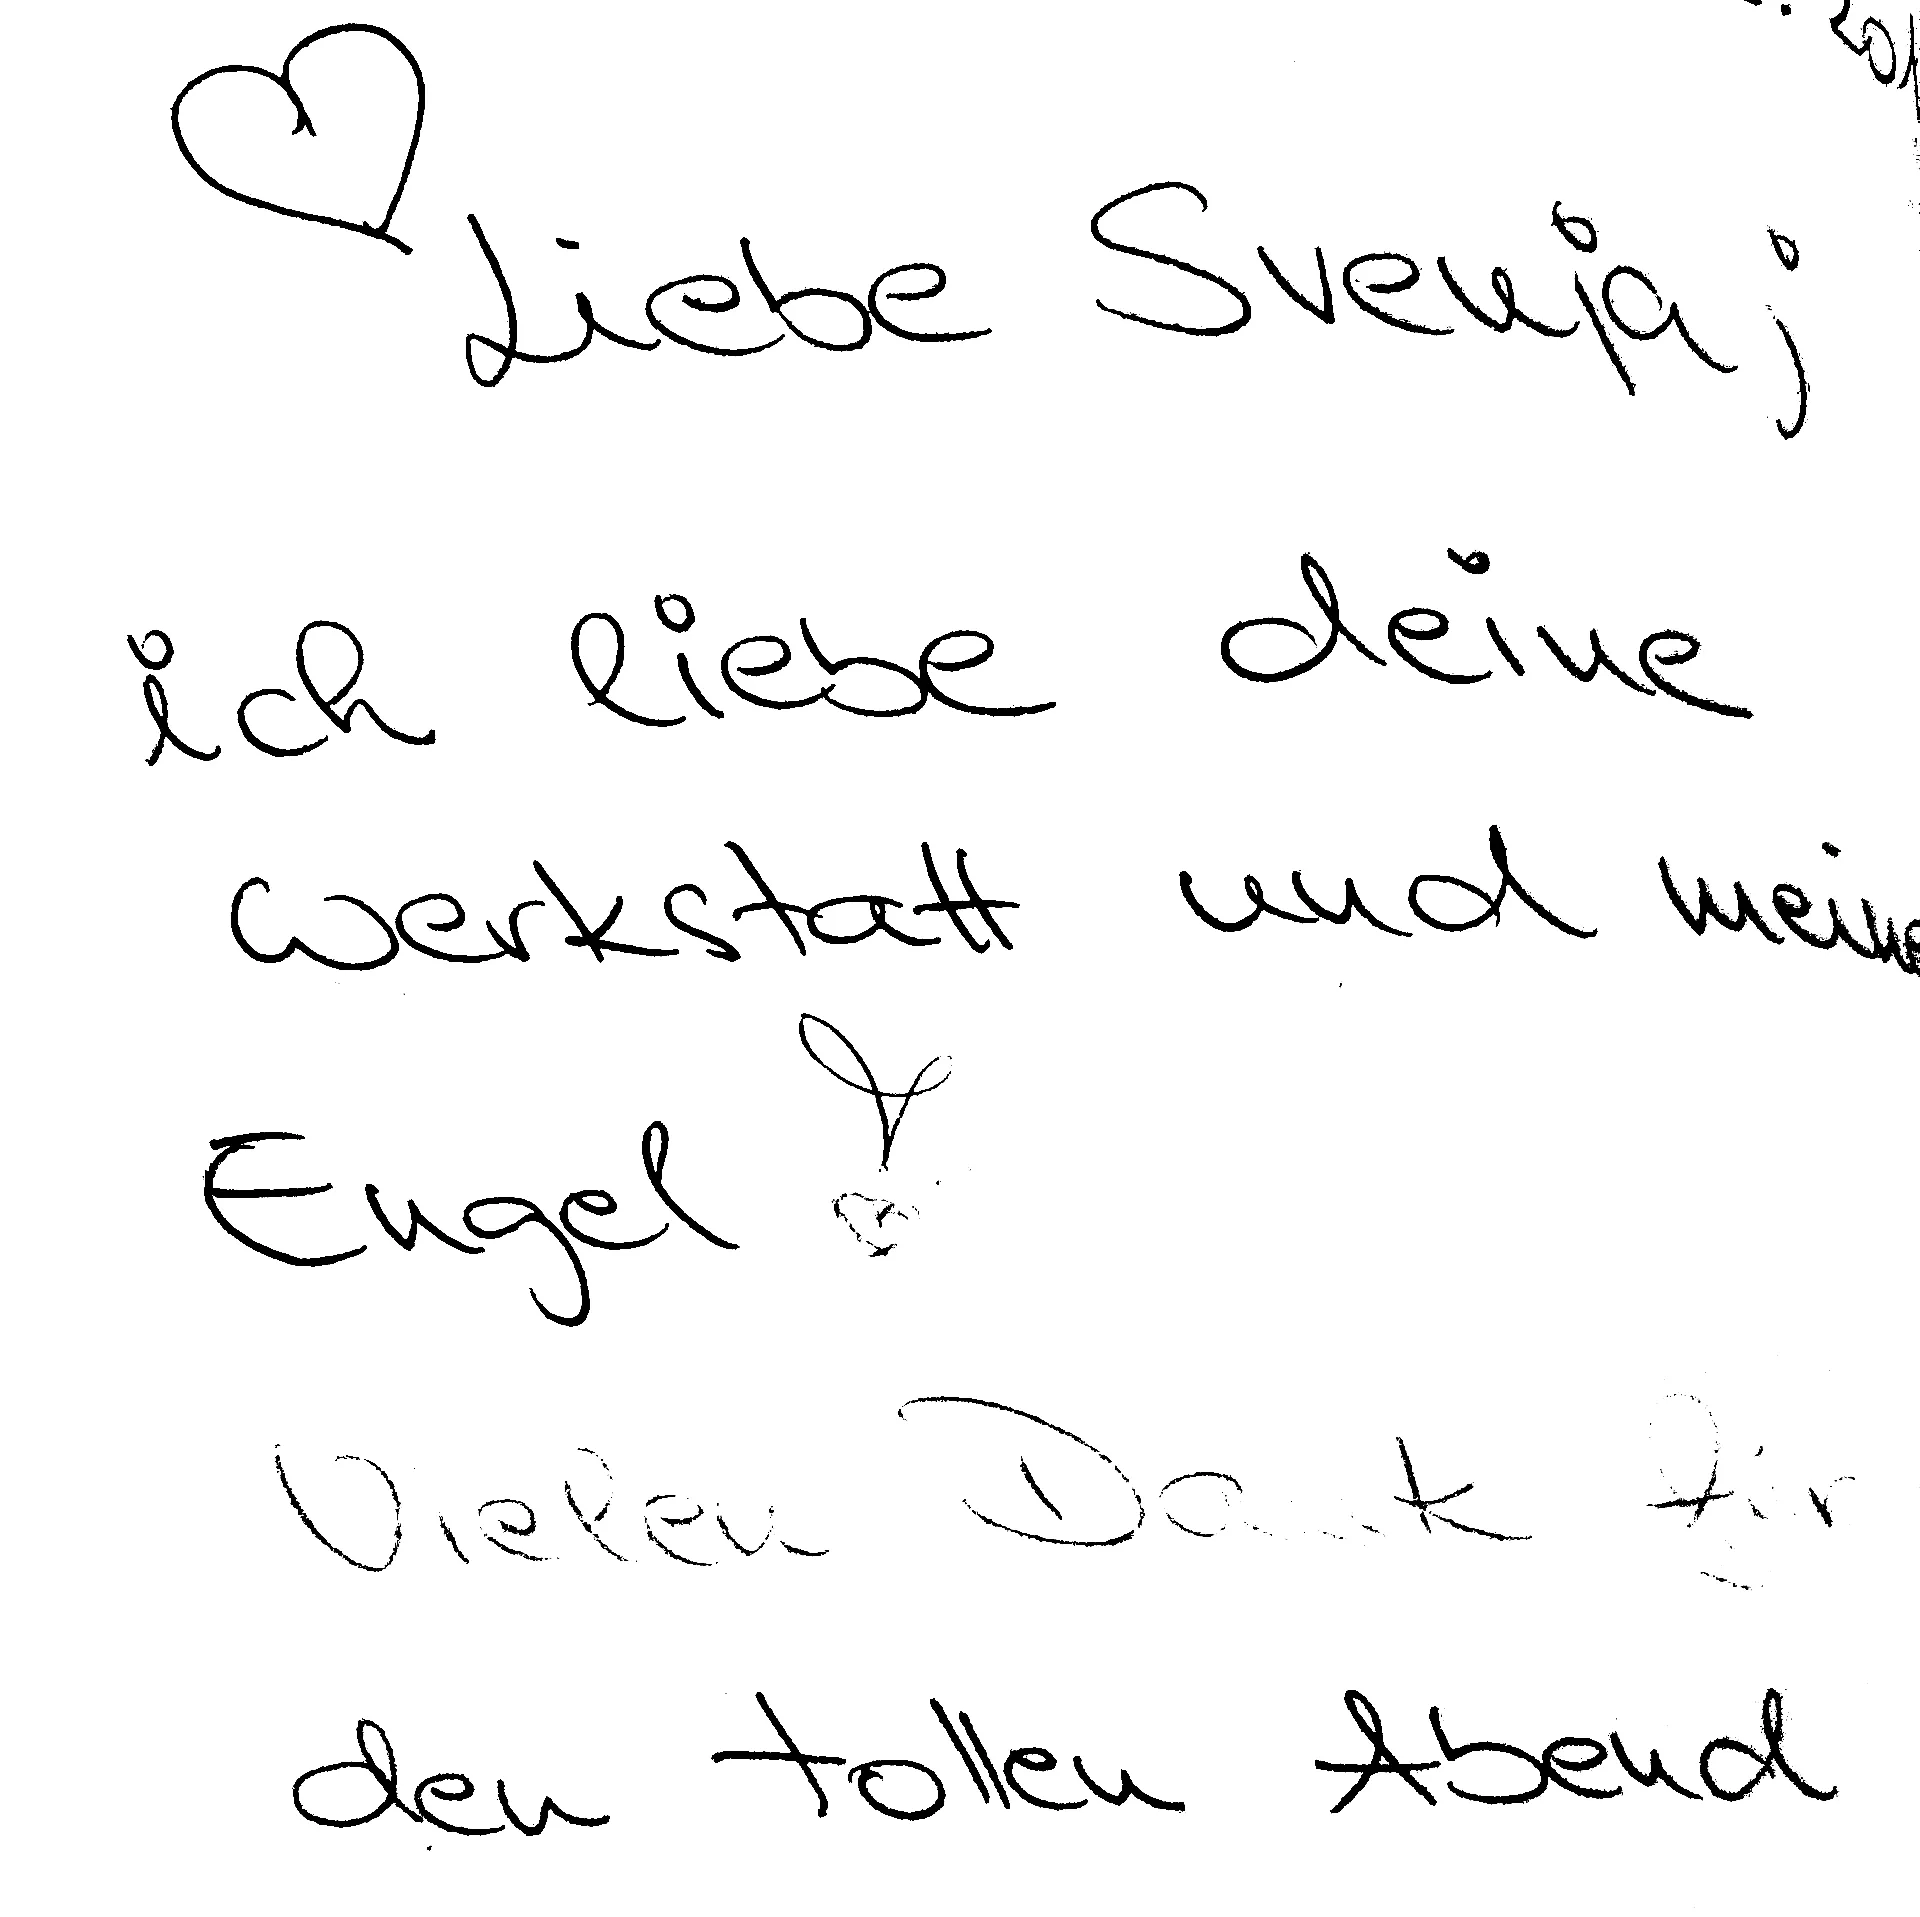 Liebe Svenja,
ich liebe deine
Werkstatt und meine
Engel
Vielen Dank für
den tollen Abend